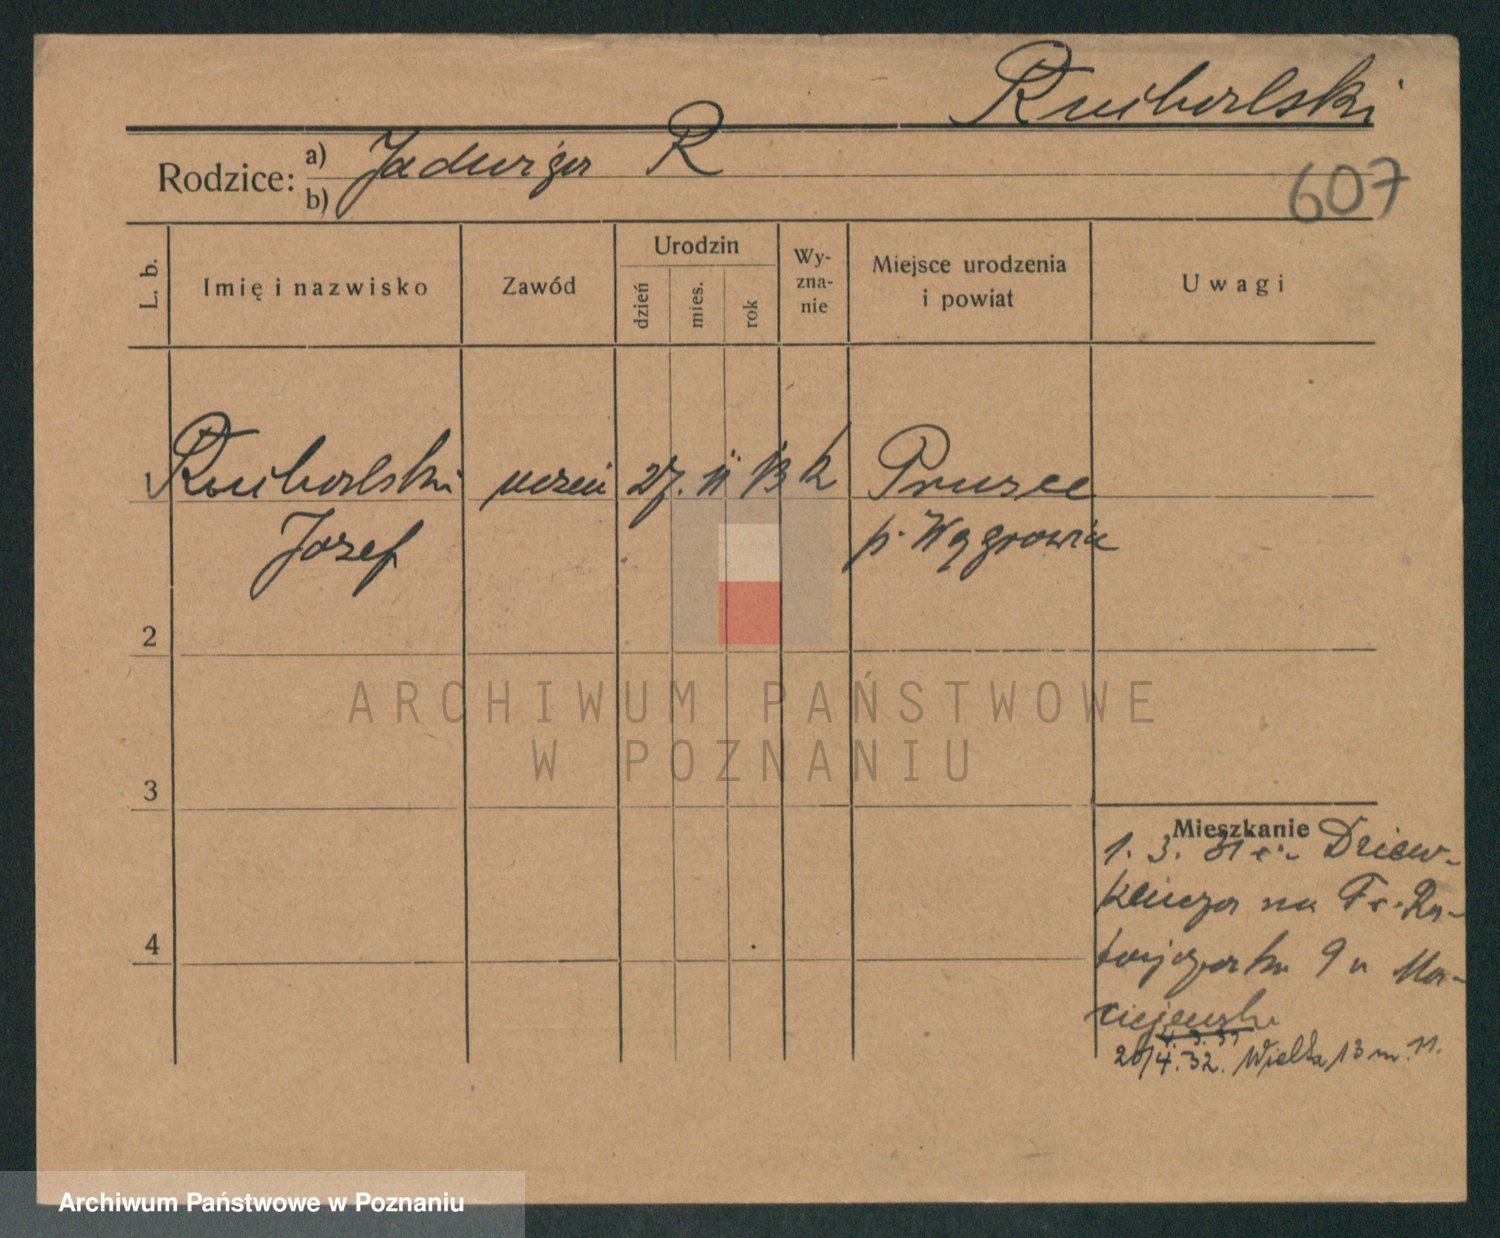 Rodzice: a) Jadwiga R
b)
607
L. b. Imię i nazwisko Zawód Urodzin dzień mies. rok Wy-zna-nie Miejsce urodzenia i powiat Uwagi
uczeń 27. II 13 k Prusce
Józef p. Wągrowiec
2
ARCHIWUM PAŃSTWOWE
W POZNANIU
3
Mieszkanie
1. 3. 31
na Fr. Ra-
tajczaka 9 u Ma-
ciejewska
4
20/4.32. Wielka 13 m. 11.
Archiwum Państwowe w Poznaniu